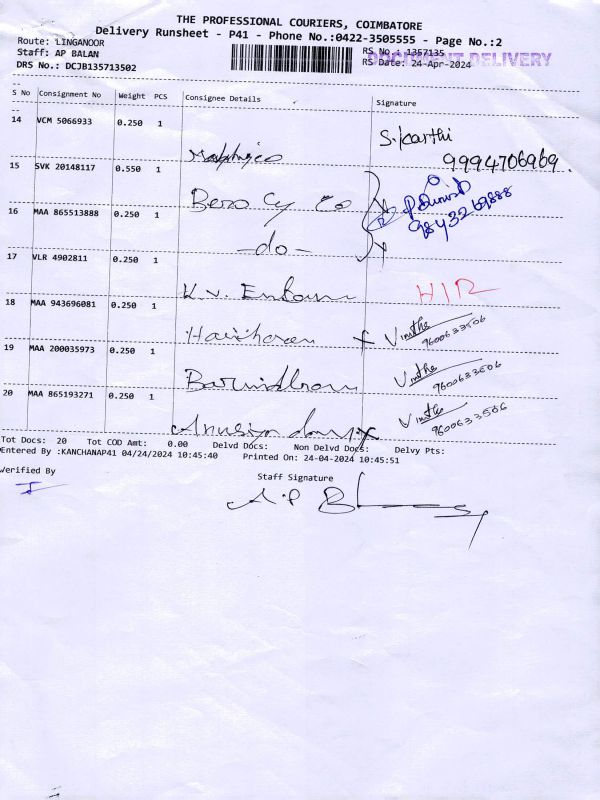 THE PROFESSIONAL COURIERS, COIMBATORE
Delivery Runsheet - P41 - Phone No.:0422-3505555 - Page No.:2
Route: LINGANOOR
RS No : 1357135
Staff: AP BALAN
DOCUMENT DELIVERY
RS Date: 24-Apr-2024
DRS No.: DCJB135713502
S No Consignment No Weight PCS Consignee Details Signature
14 VCM 5066933 0.250 1 S. Karthi
9994706969.
15 SVK 20148117 0.550 1
Bero Cy Co
9843269888
16 MAA 865513888 0.250 1
-do-
17 VLR 4902811 0.250 1
K.V. HIR
18 MAA 943696081 0.250 1
Hariharan Vinitha
9600633506
19 MAA 200035973 0.250 1
Vinitha
9600633506
20 MAA 865193271 0.250 1
Vinitha
9600633506
Tot Docs: 20 Tot COD Amt: 0.00 Delvd Docs: Non Delvd Docs: Delvy Pts:
Entered By :KANCHANAP41 04/24/2024 10:45:40 Printed On: 24-04-2024 10:45:51
Verified By
Staff Signature